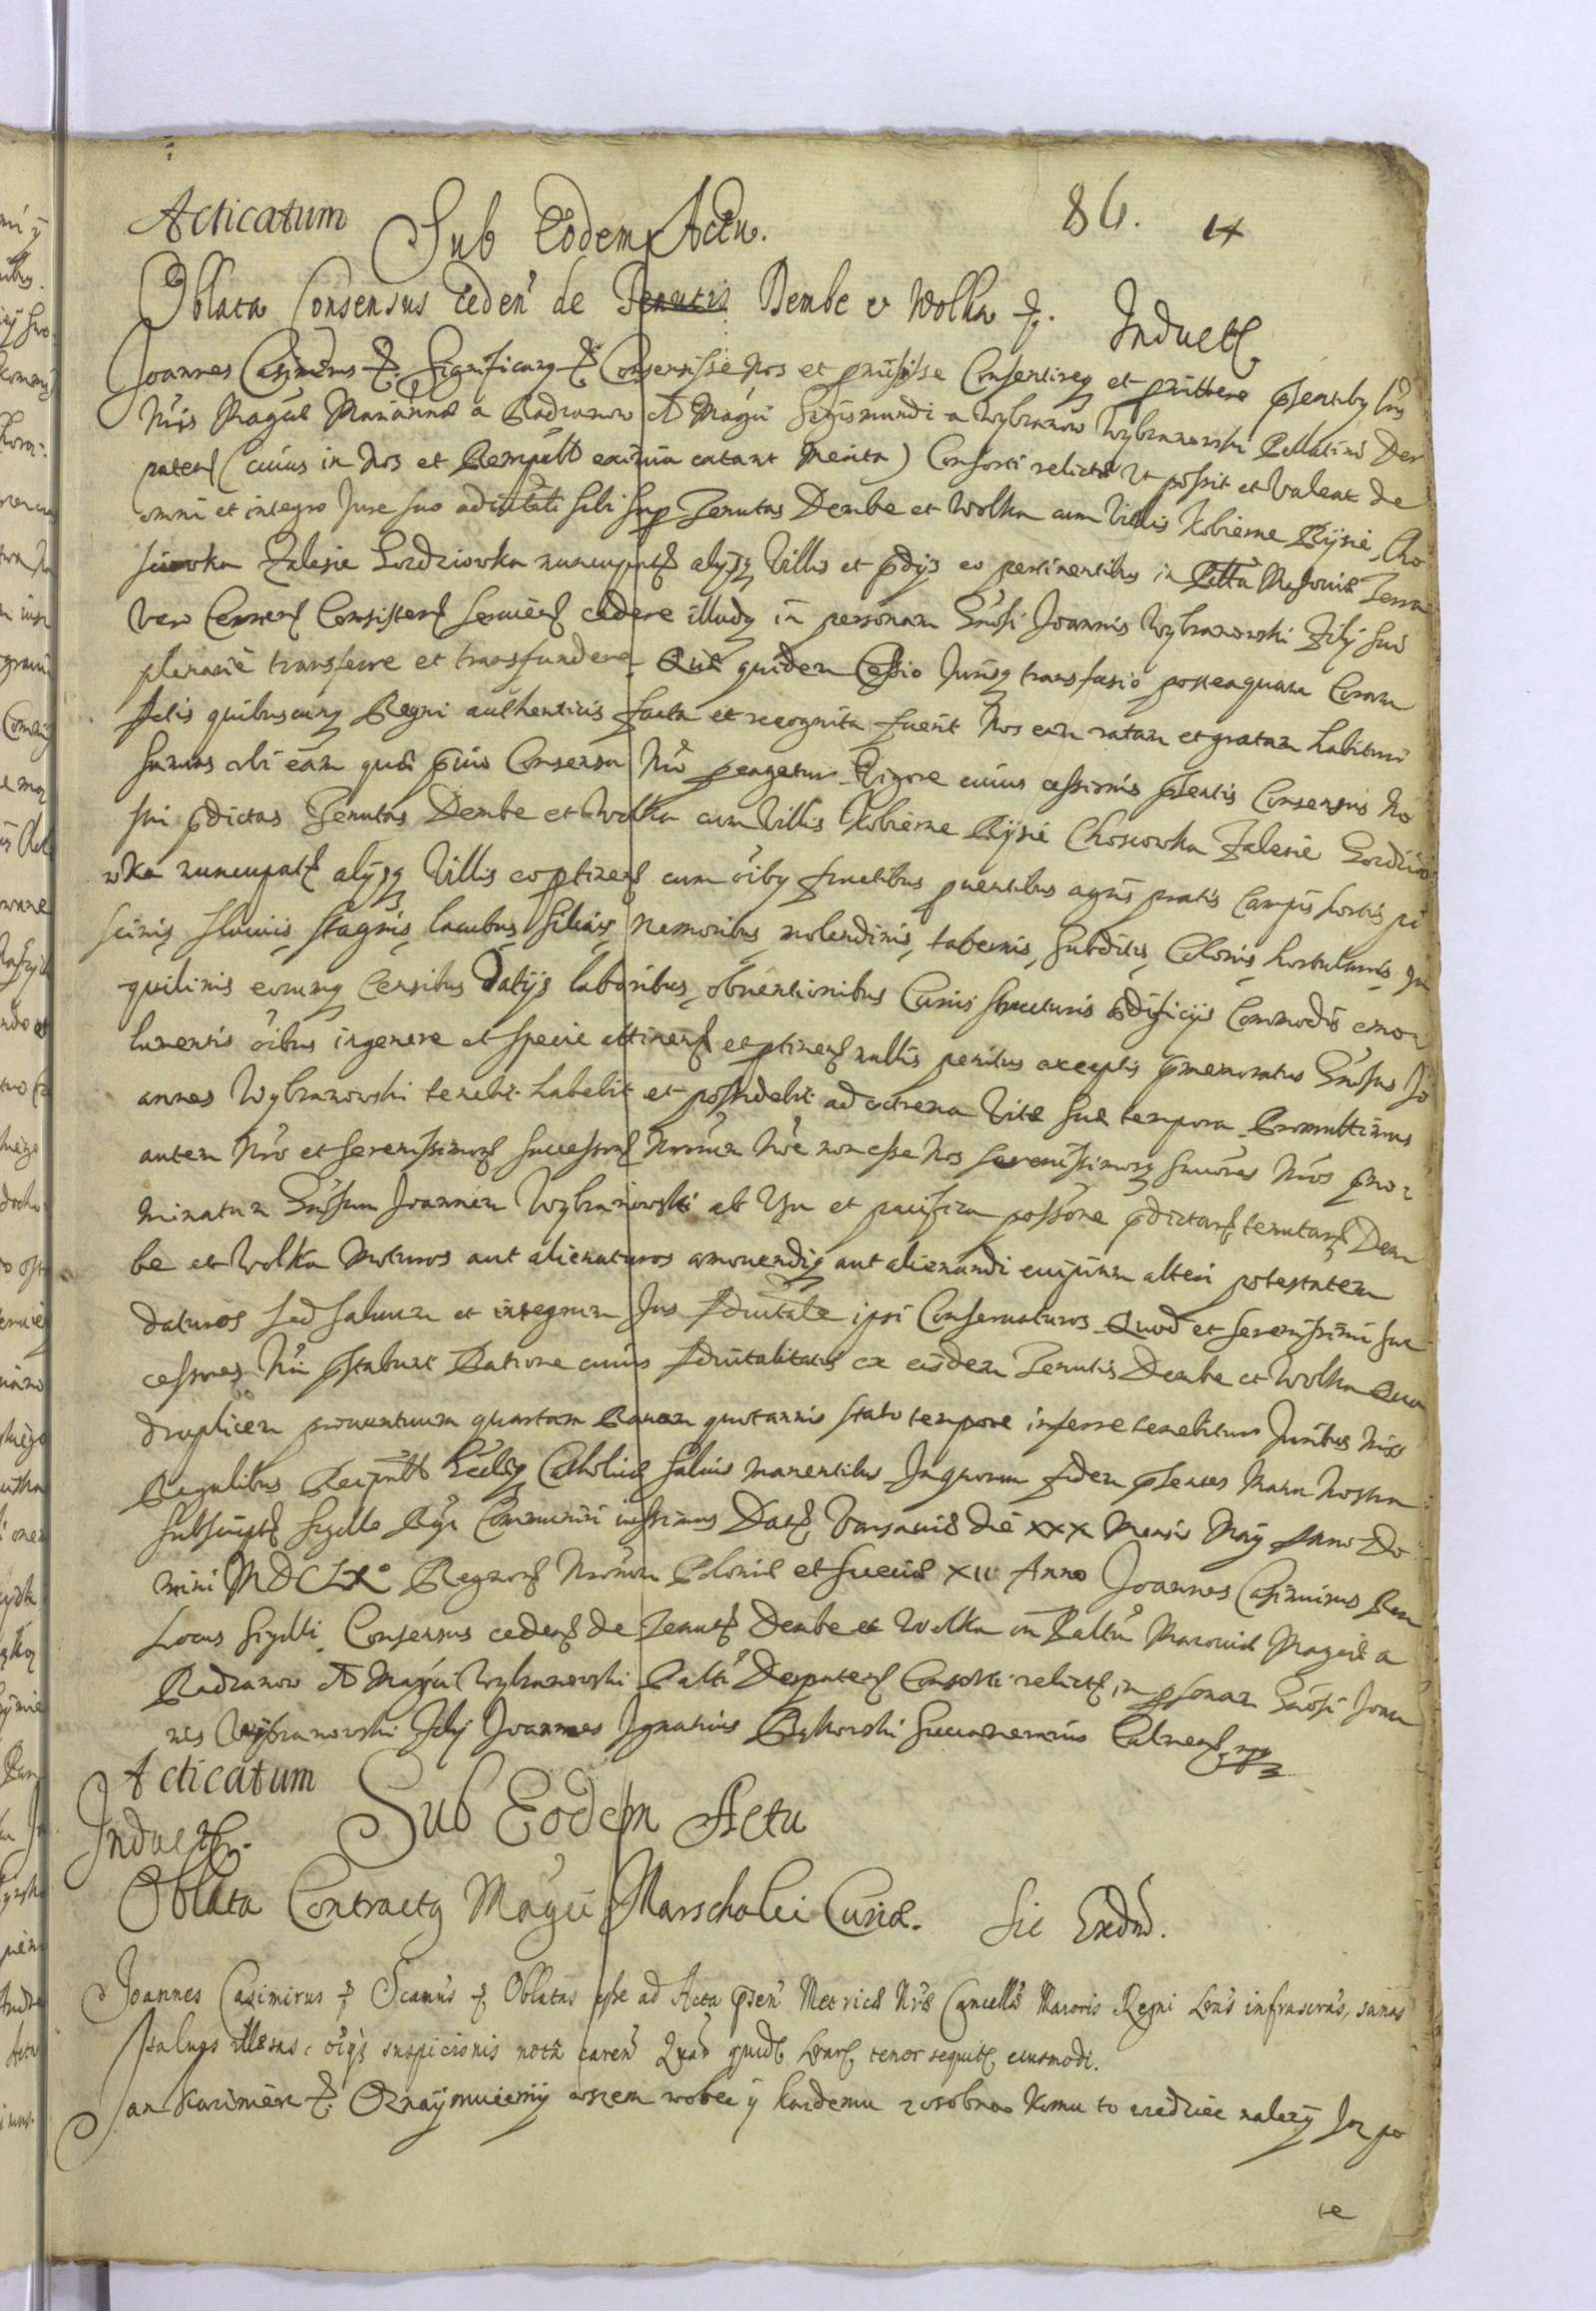 Acticatum Sub Eodem Actu. 86. 14
Oblata Consensus Ceden̄ de Tenutis Dembe et Wolka &. Induct
Joannes Casimirus &. Significamus & Consensisse Nos et p̄misisse Consentireq et p̄mittere p̄sentibus
Nris Magcae Mariannae a Radzanow olim Magci Sigismundi a Wybranow Wybranowski Pallatini Der
patens (cuius in Nos et Rempubl eximia extant merita) Consorti relictae Ut possit et valeat de
omni et integro Jure suo advitali sibi sup Tenutas Dembe et Wolka cum Villis Kobierne Rysie Cho
sciowka Zalesie Lordziowka nuncupat alysq Villis et p̄dijs eo pertinentibus in Pallatu Masoviae Terra
vero Cernen Consisten Servien cedere illudq in personam Gnosi Joannis Wybranowski Filij sui
plenarie transferre et transfundere. Quae quidem Cessio Jurisq transfusio posteaquam Coram
Actis quibuscunq Regni authenticis facta et recognita fuerit Nos eam ratam et gratam habituri
sumus ubi eam quae p̄vio Consensu Nro peragetur. Vigore cuius cessionis p̄sentis Consensus No
stri p̄dictas Tenutas Dembe et Wolka cum Villis Kobierne Rysie Chosciowka Zalesie Lordzio
wka nuncupat alysq Villis eo ptinen cum oibq fructibus p̄ventibus agris pratis Campis hortis pi
scinis fluviis stagnis lacubus silvis nemoribus molendinis, tabernis, subditis, Colonis hortulanis In
quilinis eorumq Censibus datijs laboribus, obventionibus Curiis structuris aedificijs Commodis emo
lumentis oibus in genere et specie attinen et ptinen nullis penitus exceptis p̄memoratus Gnosus Jo
annes Wybranowski tenebit habebit et possidebit ad extrema Vitae suae tempora. Promittimus
autem Nro et Serenissimor Successor Nrorum Noe non esse Nos Serenissimosq Succores Nros p̄no
minatum Gnosum Joannem Wybranowski ab Usu et pacifica possone p̄dictar tenutar Dem
be et Wolka moturos aut alienaturos amovendiq aut alienandi cuipiam alteri potestatem
daturos sed salvum et integrum Jus Advitale ipsi Conservaturos. Quod et Serenissimi Suc
cessores Nri p̄stabunt. Ratione cuius Advitalitatis ex eisdem Tenutis Dembe et Wolka Qua
druplicem proventuum quartam Ravam quotannis stato tempore inferre tenebitur Juribus Nris
Regalibus Reipubl Ecclq Catholicae salvis manentibus In quorum fidem p̄sentes Manu Nostra
subscript Sigillo Rgi Communiri iussimus Dat Varsaviae die XXX Mensis Maij Anno Do
mini MDCLX° Regnor Nrorum Poloniae et Sueciae XII Anno Joannes Casimirus Rex
Locus Sigilli. Consensus ceden de Tenut Dembe et Wolka in Pallu Masoviae Magcae a
Radzanow olim Magci Wybranowski Palti Derpaten Consorti relict in p̄sonam Gnosi Joan
nis Wybranowski Filij Joannes Ignatius Bąkowski Succamerarius Culmen mp
Acticatum Sub Eodem Actu
Induct.
Oblata Contractq Magci Marschalci Curiae. Sic Extrd.
Joannes Casimirus & Scamus & Oblatas esse ad Acta p̄sen Metricae Nrae Cancellae Maioris Regni Lras infrascras, sanas
salvas illesas, oiq suspicionis nota caren̄ Quar quid Lrar tenor sequit eiusmodi.
Jan Kazimierz &. Oznaymuiemy wszem wobec y kazdemu zosobna komu to wiedziec nalezy Iz po
te